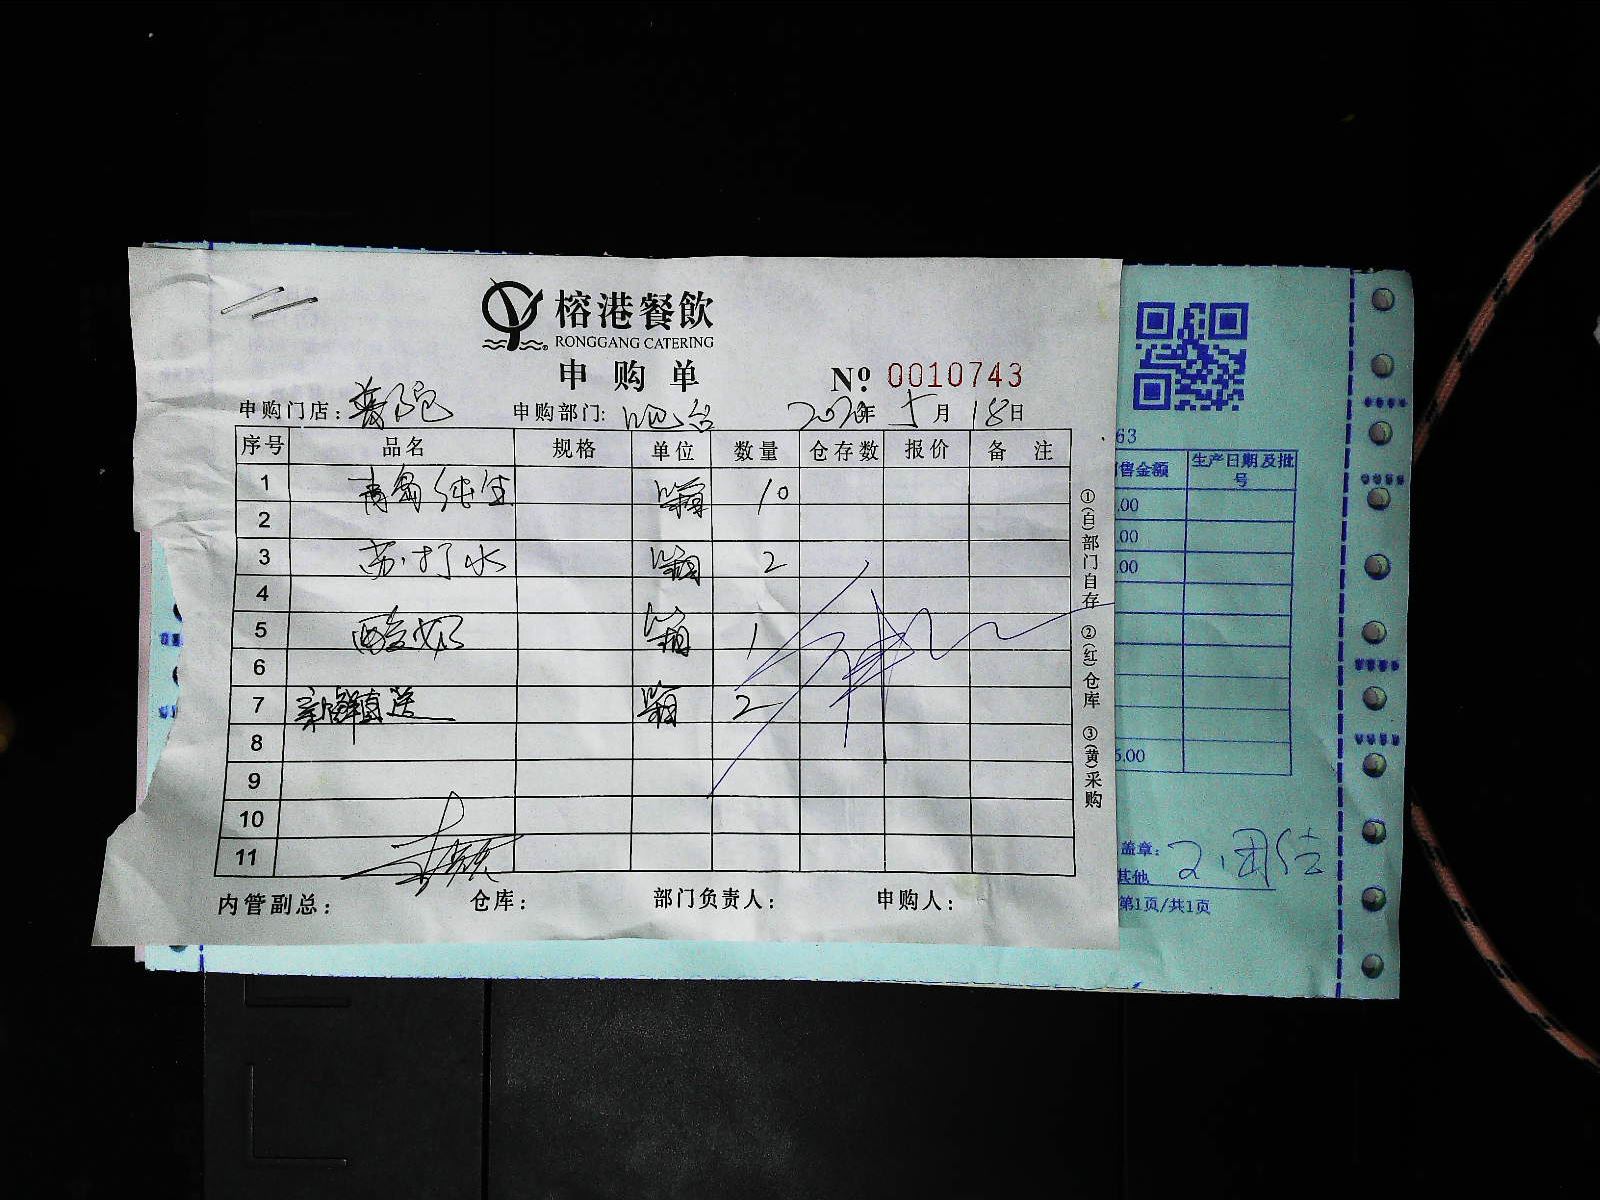 榕港餐飲
RONGGANG CATERING
申购单
№ 0010743
申购门店: 申购部门: 吧台 2020年 5月 18日
序号 品名 规格 单位 数量 仓存数 报价 备注
1 青岛纯生 箱 10
2
3 苏打水 箱 2
4
5 酸奶 箱 1
6
7 新鲜直送 箱 2
8
9
10
11
内管副总: 仓库: 部门负责人: 申购人:
①(自)部门自存 ②(红)仓库 ③(黄)采购
63
售金额 生产日期及批号
.00
.00
.00
5.00
盖章:
其他
第1页/共1页